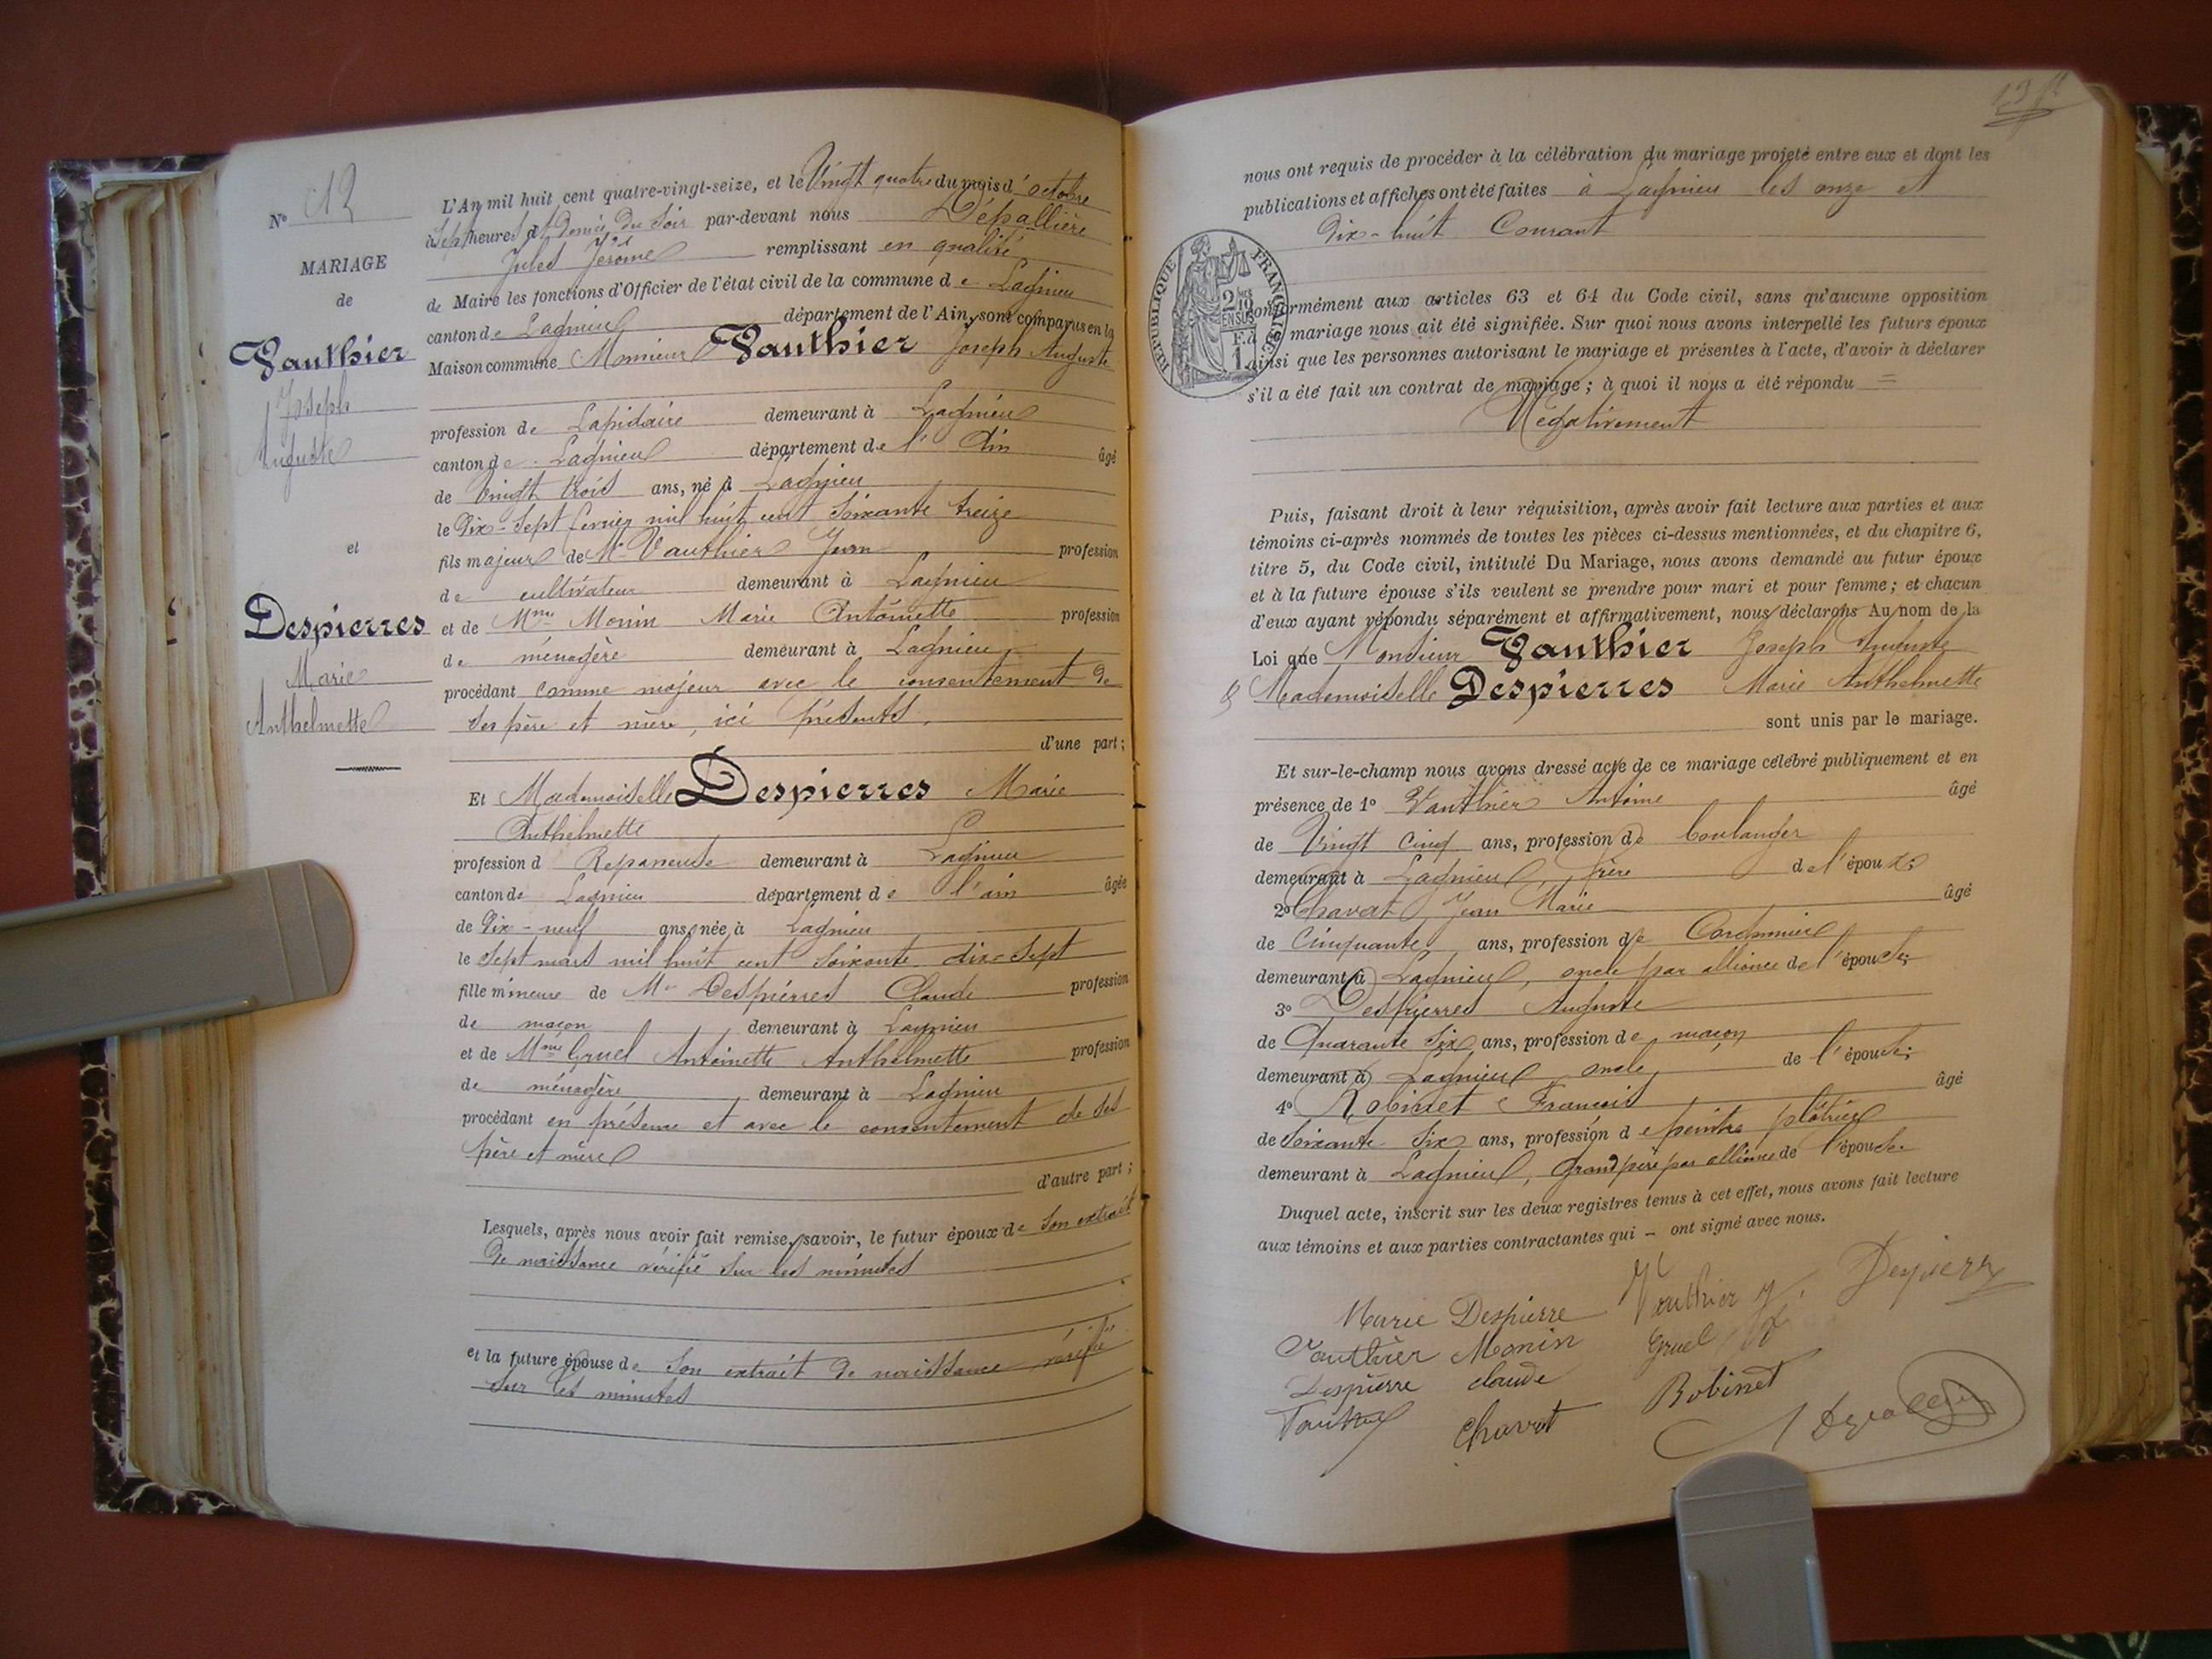 N° 12
MARIAGE
de
Vauthier
Joseph
Auguste
et
Despierres
Marie
Anthelmette
L'An mil huit cent quatre-vingt-seize, et le Vingt quatre du mois d'octobre
à Sept heures et Demie du Soir par-devant nous Dépallière
Jules Jérôme remplissant en qualité
de Maire les fonctions d'Officier de l'état civil de la commune de Lagnieu
canton de Lagnieu département de l'Ain, sont comparus en la
Maison commune Monsieur Vauthier Joseph Auguste
profession de Lapidaire demeurant à Lagnieu
canton de Lagnieu département de l'Ain âgé
de Vingt trois ans, né à Lagnieu
le Dix-Sept février mil huit cent Soixante treize
fils majeur de Mr Vauthier Jean profession
de cultivateur demeurant à Lagnieu
et de Mme Monin Marie Antoinette profession
de ménagère demeurant à Lagnieu
procédant comme majeur avec le consentement de
Ses père et mère, ici présents.
d'une part;
Et Mademoiselle Despierres Marie
Anthelmette
profession d Repasseuse demeurant à Lagnieu
canton de Lagnieu département de l'ain âgée
de Dix-neuf ans, née à Lagnieu
le Sept mars mil huit cent Soixante dix-Sept
fille mineure de Mr Despierres Claude profession
de maçon demeurant à Lagnieu
et de Mme Gruel Antoinette Anthelmette profession
de ménagère demeurant à Lagnieu
procédant en présence et avec le consentement de Ses
père et mère
d'autre part;
Lesquels, après nous avoir fait remise, savoir, le futur époux de Son extrait
de naissance vérifié Sur les minutes
et la future épouse de Son extrait de naissance vérifié
Sur les minutes
nous ont requis de procéder à la célébration du mariage projeté entre eux et dont les
publications et affiches ont été faites à Lagnieu les onze et
Dix-huit Courant
REPUBLIQUE FRANÇAISE
2/10 EN SUS
1 F.
conformément aux articles 63 et 64 du Code civil, sans qu'aucune opposition
mariage nous ait été signifiée. Sur quoi nous avons interpellé les futurs époux
ainsi que les personnes autorisant le mariage et présentes à l'acte, d'avoir à déclarer
s'il a été fait un contrat de mariage; à quoi il nous a été répondu =
Négativement
Puis, faisant droit à leur réquisition, après avoir fait lecture aux parties et aux
témoins ci-après nommés de toutes les pièces ci-dessus mentionnées, et du chapitre 6,
titre 5, du Code civil, intitulé Du Mariage, nous avons demandé au futur époux
et à la future épouse s'ils veulent se prendre pour mari et pour femme; et chacun
d'eux ayant répondu séparément et affirmativement, nous déclarons Au nom de la
Loi que Monsieur Vauthier Joseph Auguste
& Mademoiselle Despierres Marie Anthelmette
sont unis par le mariage.
Et sur-le-champ nous avons dressé acte de ce mariage célébré publiquement et en
présence de 1° Vauthier Antoine âgé
de Vingt cinq ans, profession de boulanger
demeurant à Lagnieu, frère de l'époux;
2° Chavat Jean Marie âgé
de Cinquante ans, profession de Cordonnier
demeurant à Lagnieu, oncle par alliance de l'épouse;
3° Despierres Auguste
de Quarante Six ans, profession de maçon
demeurant à Lagnieu oncle de l'épouse;
4° Robinet François âgé
de Soixante Six ans, profession de peintre plâtrier
demeurant à Lagnieu, Grand père par alliance de l'épouse.
Duquel acte, inscrit sur les deux registres tenus à cet effet, nous avons fait lecture
aux témoins et aux parties contractantes qui - ont signé avec nous.
Marie Despierre Vauthier J. Despierre
Vauthier Monin Gruel
Despierre Claude Robinet
Chavat